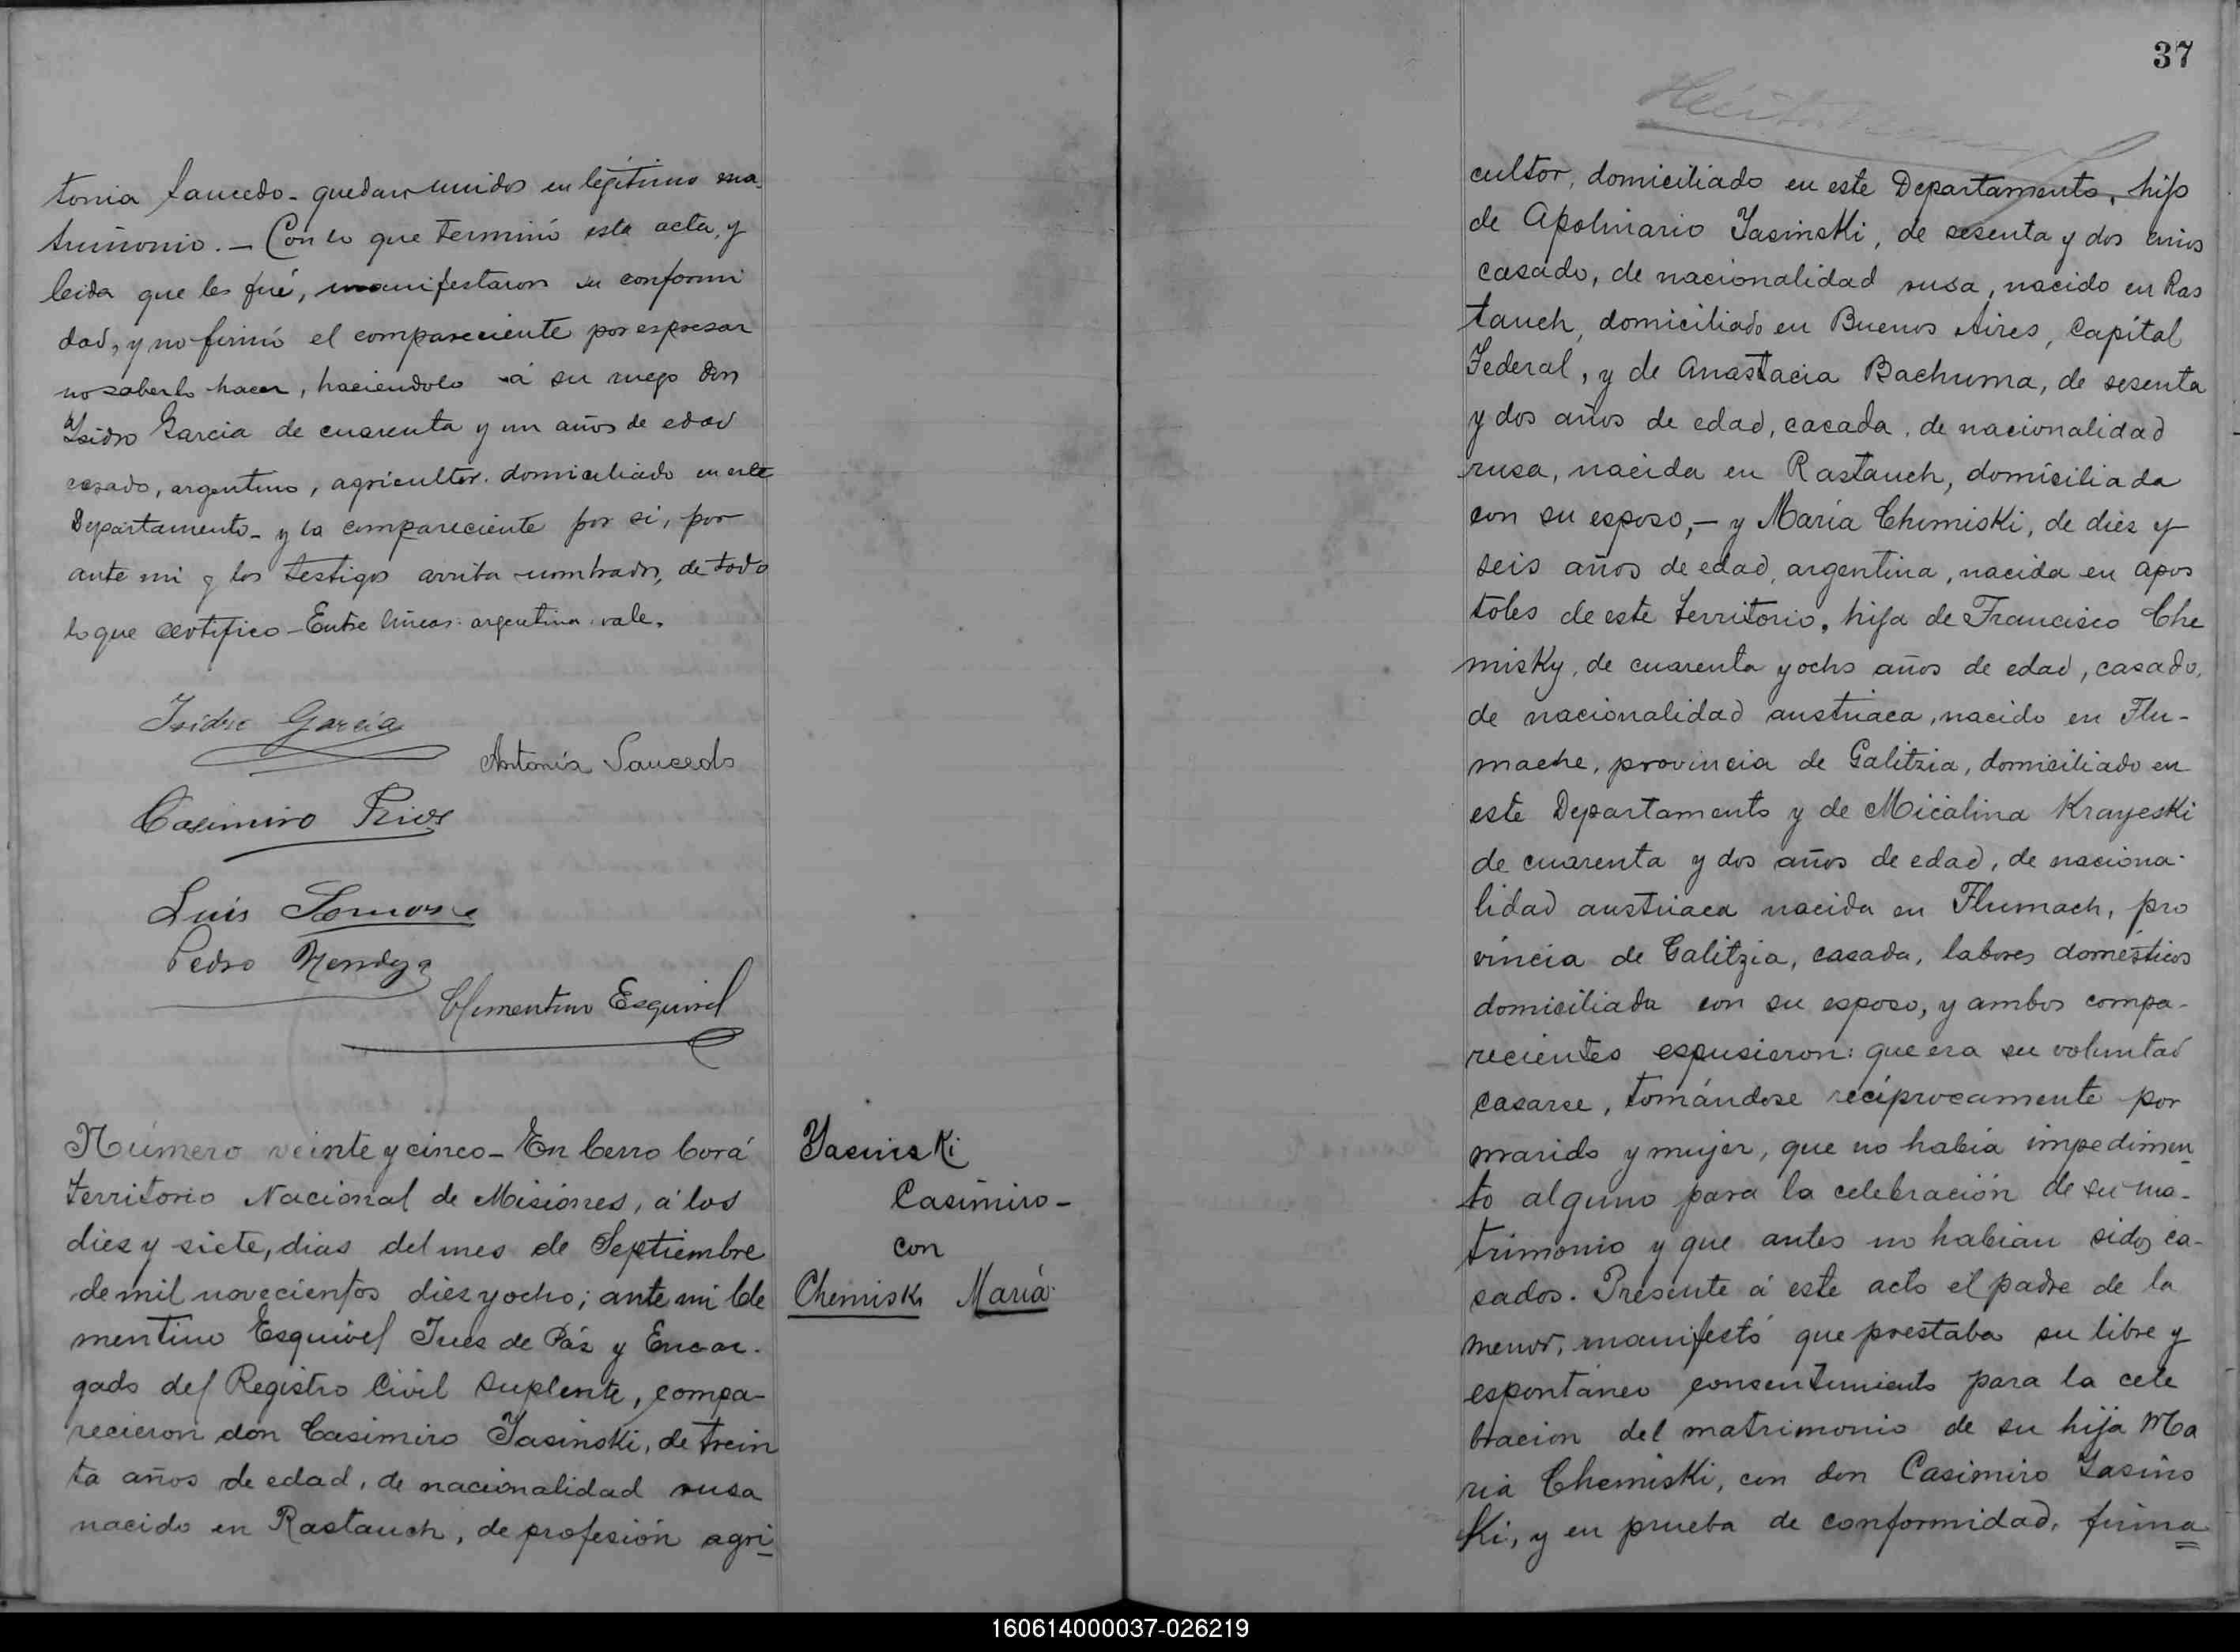 tonia Saucedo - quedan unidos en legítimo ma-
trimonio. - Con lo que terminó esta acta, y
leida que les fué, manifestaron su conformi
dad, y no firmó el compareciente por espresar
no saberlo hacer, haciendolo á su ruego don
Isidro Garcia de cuarenta y un años de edad
casado, argentino, agricultor. domiciliado en este
Departamento - y la compareciente por si, por
ante mi y los testigos arriba nombrados, de todo
lo que certifico - Entre lineas: argentina. vale.
Isidro García
Antonia Saucedo
Casimiro Rios
Luis
Pedro Mendoza
Clementino Esquivel
Número veinte y cinco - En Cerro Corá
territorio Nacional de Misiónes, á los
diez y siete, dias del mes de Septiembre
de mil novecientos diez y ocho; ante mi Cle
mentino Esquivel Juez de Páz y Encar-
gado del Registro Civil Suplente, compa-
recieron don Casimiro Yasinski, de trein
ta años de edad, de nacionalidad rusa
nacido en Rastauch, de profesión agri-
Yasinski
Casimiro -
con
Chemiski María
37
cultor, domiciliado en este Departamento, hijo
de Apolinario Yasinski, de sesenta y dos años
casado, de nacionalidad rusa, nacido en Ras
tauch, domiciliado en Buenos Aires, Capital
Federal, y de Anastacia Bachuma, de sesenta
y dos años de edad, casada, de nacionalidad
rusa, nacida en Rastauch, domiciliada
con su esposo, - y María Chemiski, de diez y
seis años de edad, argentina, nacida en Apos
toles de este territorio, hija de Francisco Che
misky, de cuarenta y ocho años de edad, casado,
de nacionalidad austriaca, nacido en Flu-
mache, provincia de Galitzia, domiciliado en
este Departamento y de Micalina Krayeski
de cuarenta y dos años de edad, de naciona-
lidad austriaca nacida en Flumach, pro
vincia de Galitzia, casada, labores domésticos
domiciliada con su esposo, y ambos compa-
recientes espusieron: que era su voluntad
casarse, tomándose recíprocamente por
marido y mujer, que no había impedimen-
to alguno para la celebración de su ma-
trimonio y que antes no habian sidos ca-
sados. Presente á este acto el padre de la
menor, manifestó que prestaba su libre y
espontáneo consentimiento para la cele
bración del matrimonio de su hija Ma
ria Chemiski, con don Casimiro Yasins
Ki, y en prueba de conformidad, firma
160614000037-026219